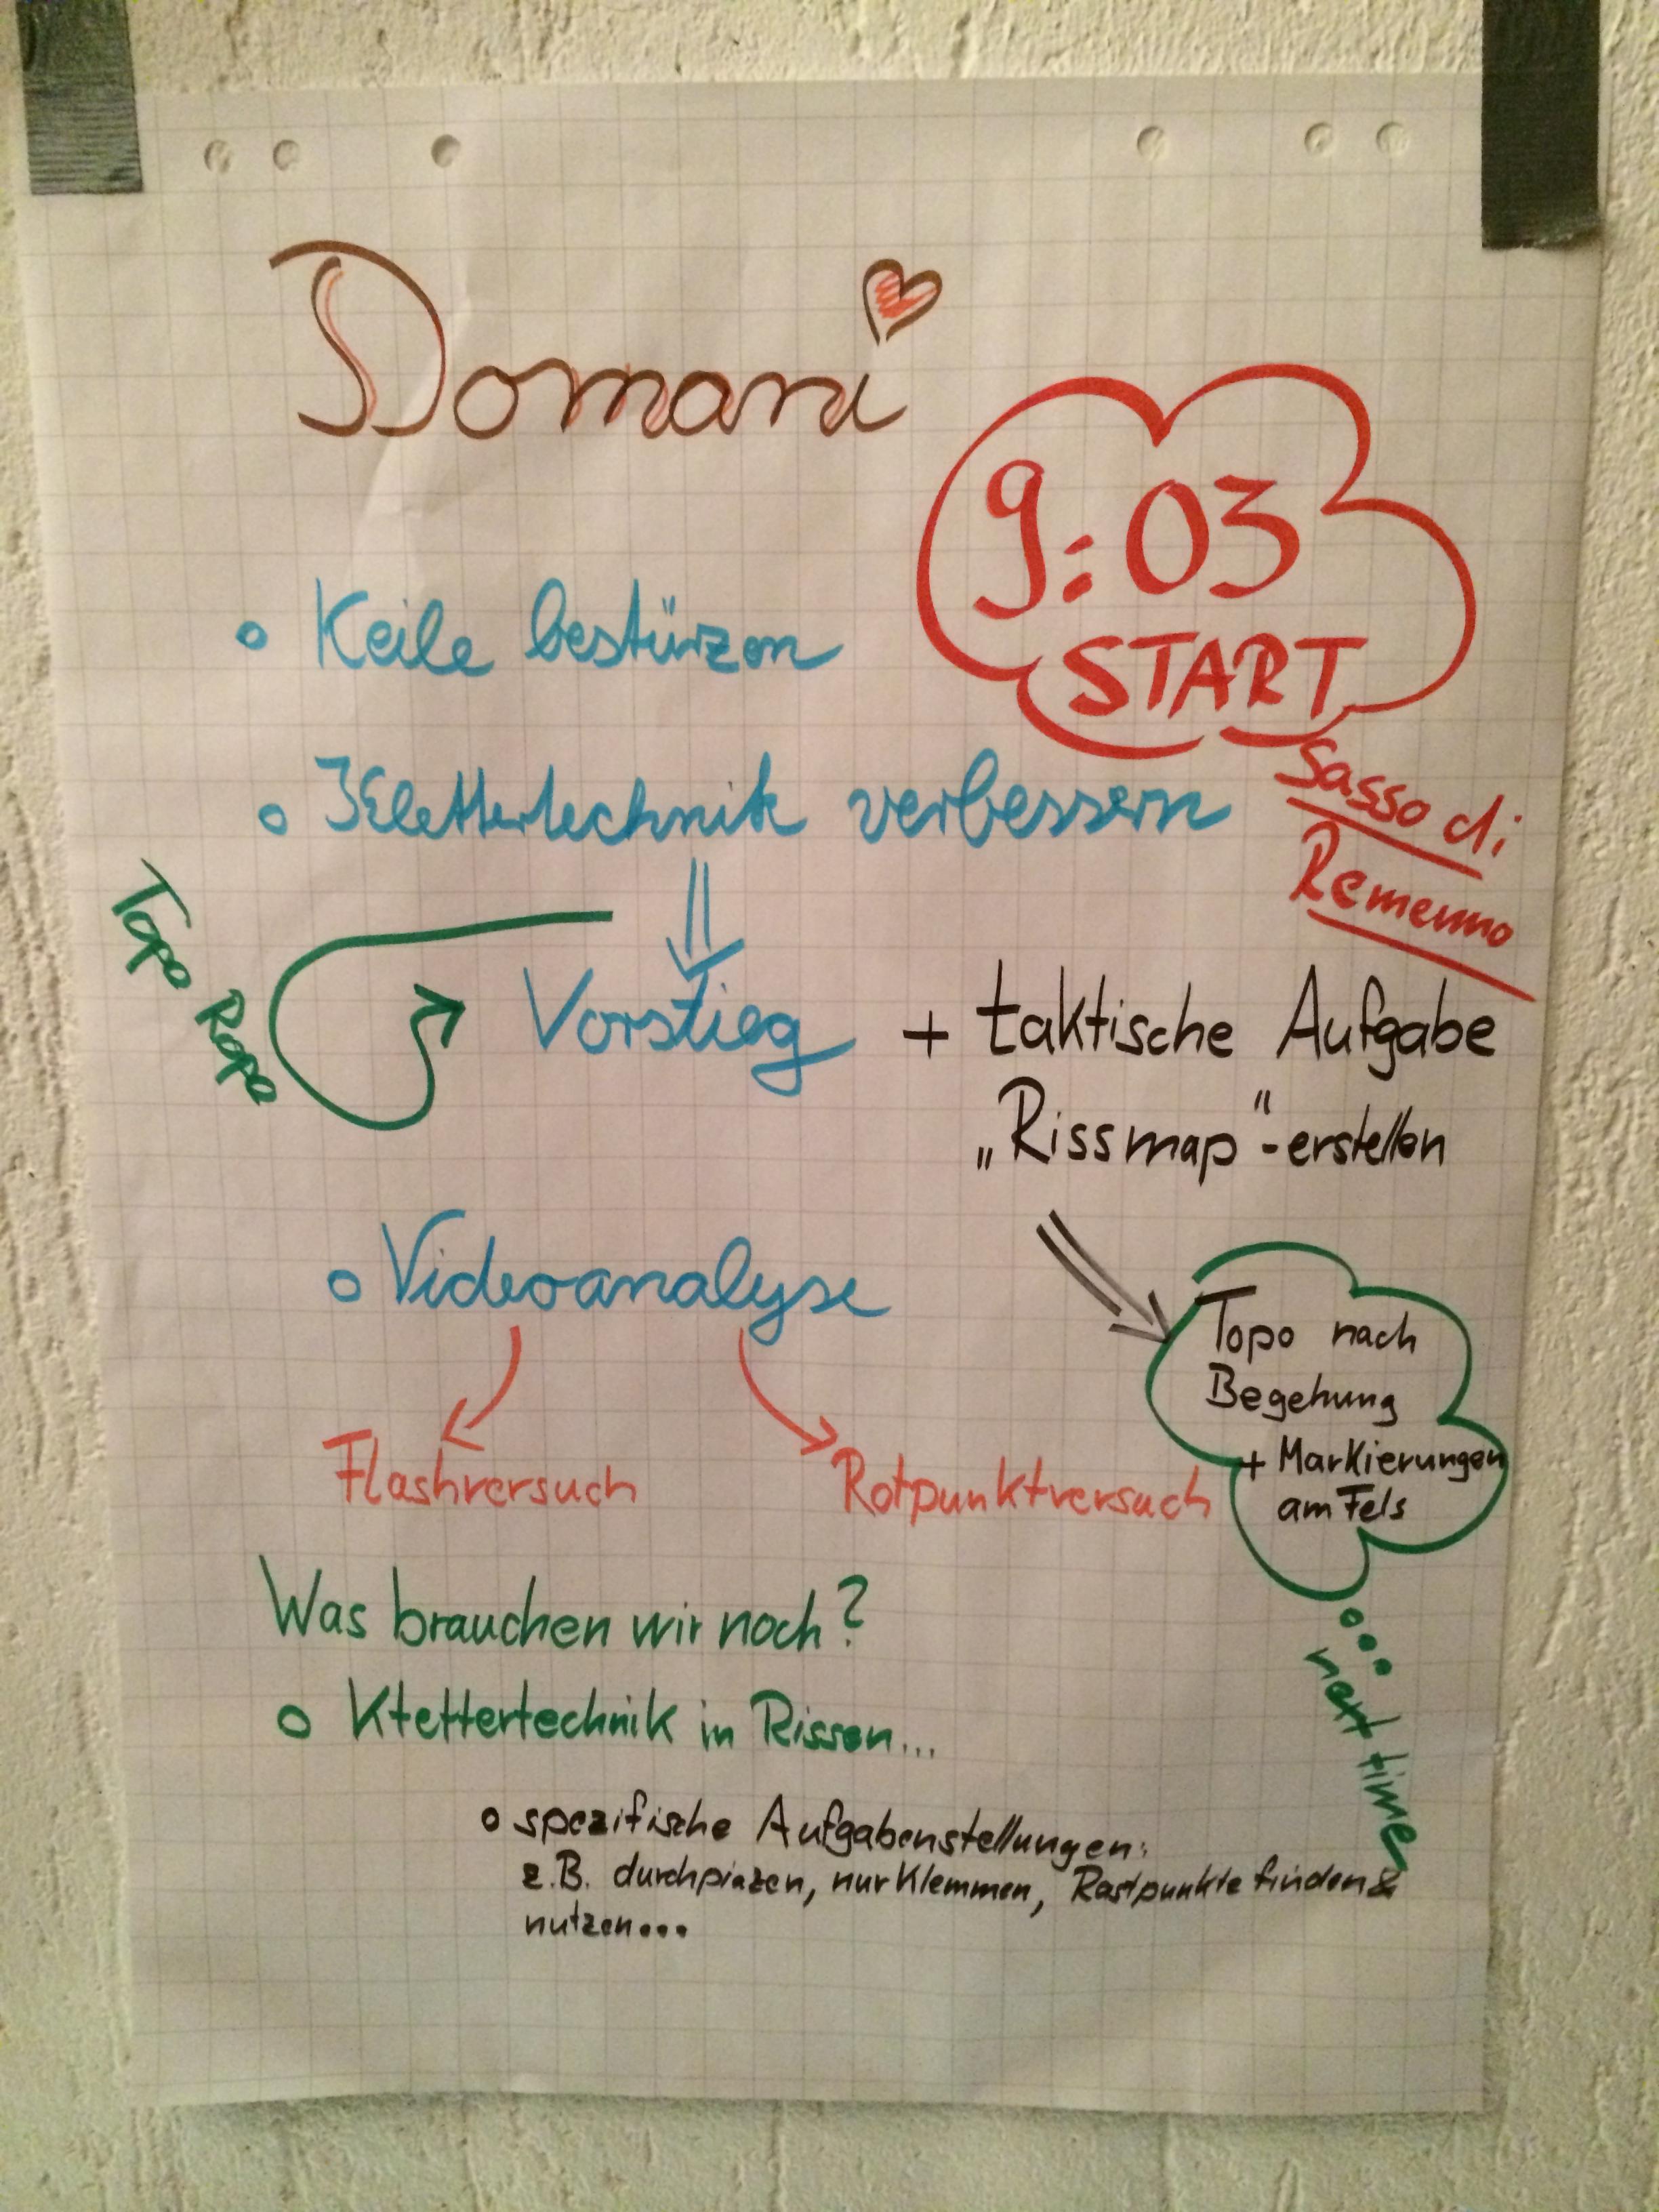 Domani
9:03
START
Sasso di
Remenno
o Keile bestürzen
o Klettertechnik verbessern
Topo Rope
Vorstieg + taktische Aufgabe
„Rissmap"-erstellen
o Videoanalyse
Topo nach
Begehung
+ Markierungen
am Fels
next time
Flashversuch
Rotpunktversuch
Was brauchen wir noch?
o Ktettertechnik in Rissen...
o spezifische Aufgabenstellungen:
z.B. durchpiazen, nur Klemmen, Rastpunkte finden &
nutzen...